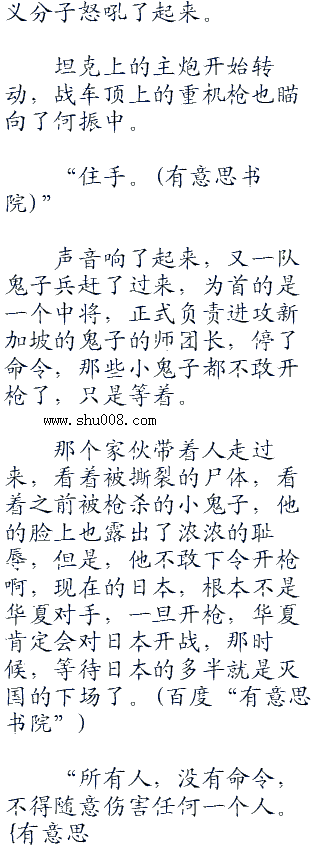 义分子怒吼了起来。
坦克上的主炮开始转
动，战车顶上的重机枪也瞄
向了何振中。
“住手。(有意思书
院)”
声音响了起来，又一队
鬼子兵赶了过来，为首的是
一个中将，正式负责进攻新
加坡的鬼子的师团长，停了
命令，那些小鬼子都不敢开
枪了，只是等着。
www.shu008.com
那个家伙带着人走过
来，看着被撕裂的尸体，看
着之前被枪杀的小鬼子，他
的脸上也露出了浓浓的耻
辱，但是，他不敢下令开枪
啊，现在的日本，根本不是
华夏对手，一旦开枪，华夏
肯定会对日本开战，那时
候，等待日本的多半就是灭
国的下场了。(百度“有意思
书院”)
“所有人，没有命令，
不得随意伤害任何一个人。
{有意思